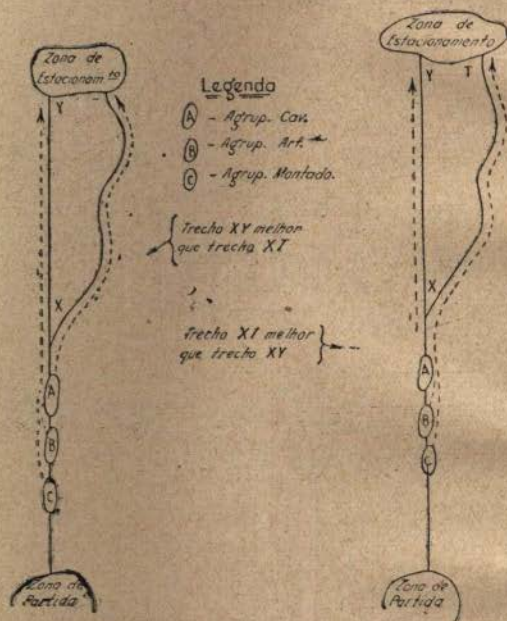 Zona de
Estacionam.to
Y
X
A
B
C
Zona de
Partida
Legenda
A - Agrup. Cav.
B - Agrup. Art.
C - Agrup. Montado.
Trecho XY melhor
que trecho XT
Trecho XT melhor
que trecho XY
Zona de
Estacionamento
Y T
X
A
B
C
Zona de
Partida